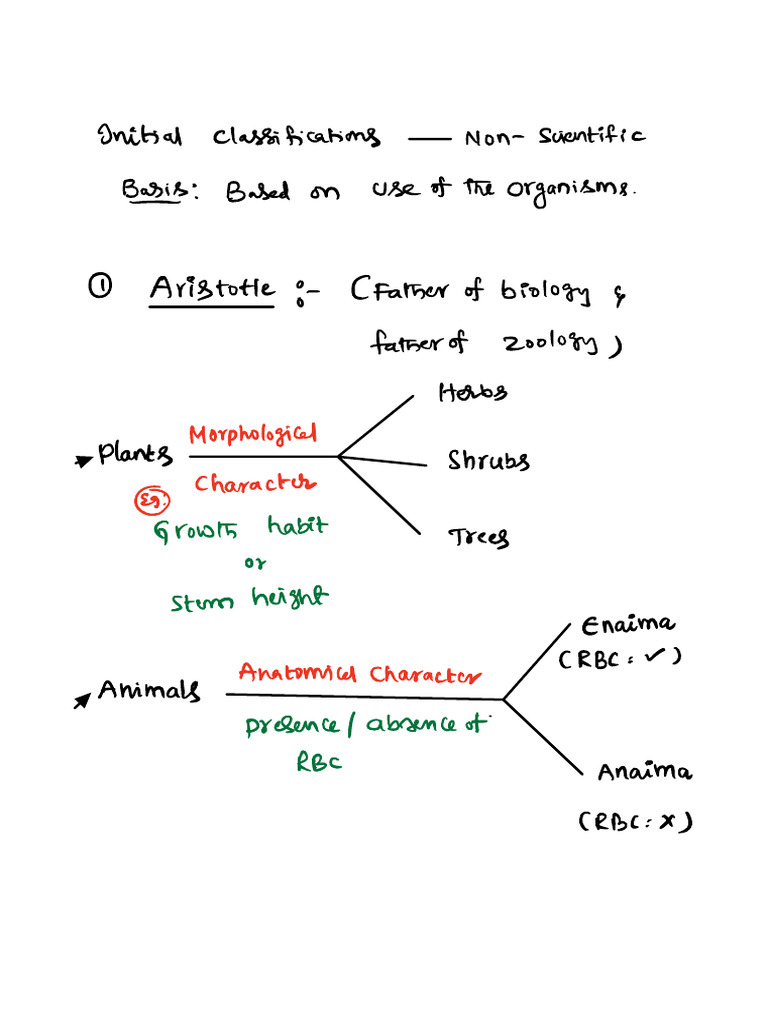 Initial Classifications — Non-Scientific
Basis: Based on use of the organisms.
① Aristotle :- (Father of biology &
father of zoology)
Herbs
Morphological
Plants
Shrubs
Character
Eg:
Growth habit
Trees
or
Stem height
Enaima
(RBC: ✓)
Anatomical Character
Animals
presence / absence of
RBC
Anaima
(RBC: x)